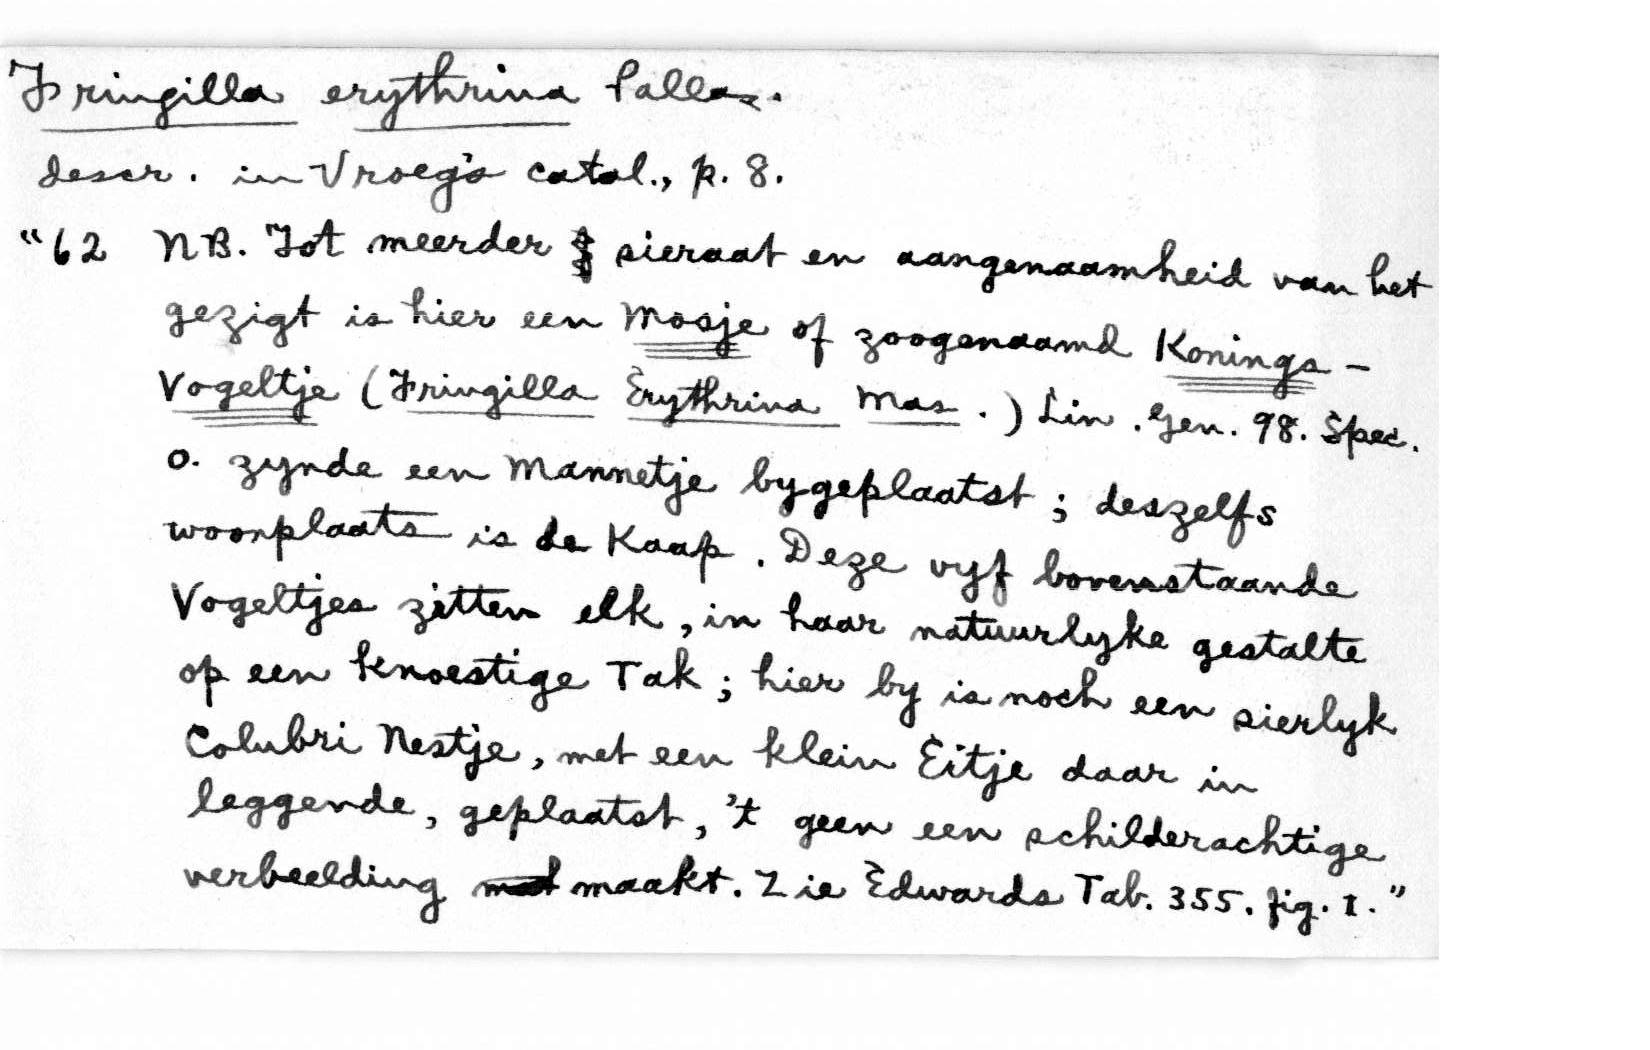 Fringilla erythrina Pallas.
descr. in Vroeg's catal., p. 8.
"62 NB. Tot meerder sieraat en aangenaamheid van het
gezigt is hier een Mosje of zoogenaamd Konings-
Vogeltje (Fringilla Erythrina Mas.) Lin. Gen. 98. Spec.
o. zynde een Mannetje bygeplaatst; deszelfs
woonplaats is de Kaap. Deze vyf bovenstaande
Vogeltjes zitten elk, in haar natuurlyke gestalte
op een knoestige Tak; hier by is noch een sierlyk
Colubri Nestje, met een klein Eitje daar in
leggende, geplaatst, 't geen een schilderachtige
verbeelding maakt. Zie Edwards Tab. 355. fig. 1."